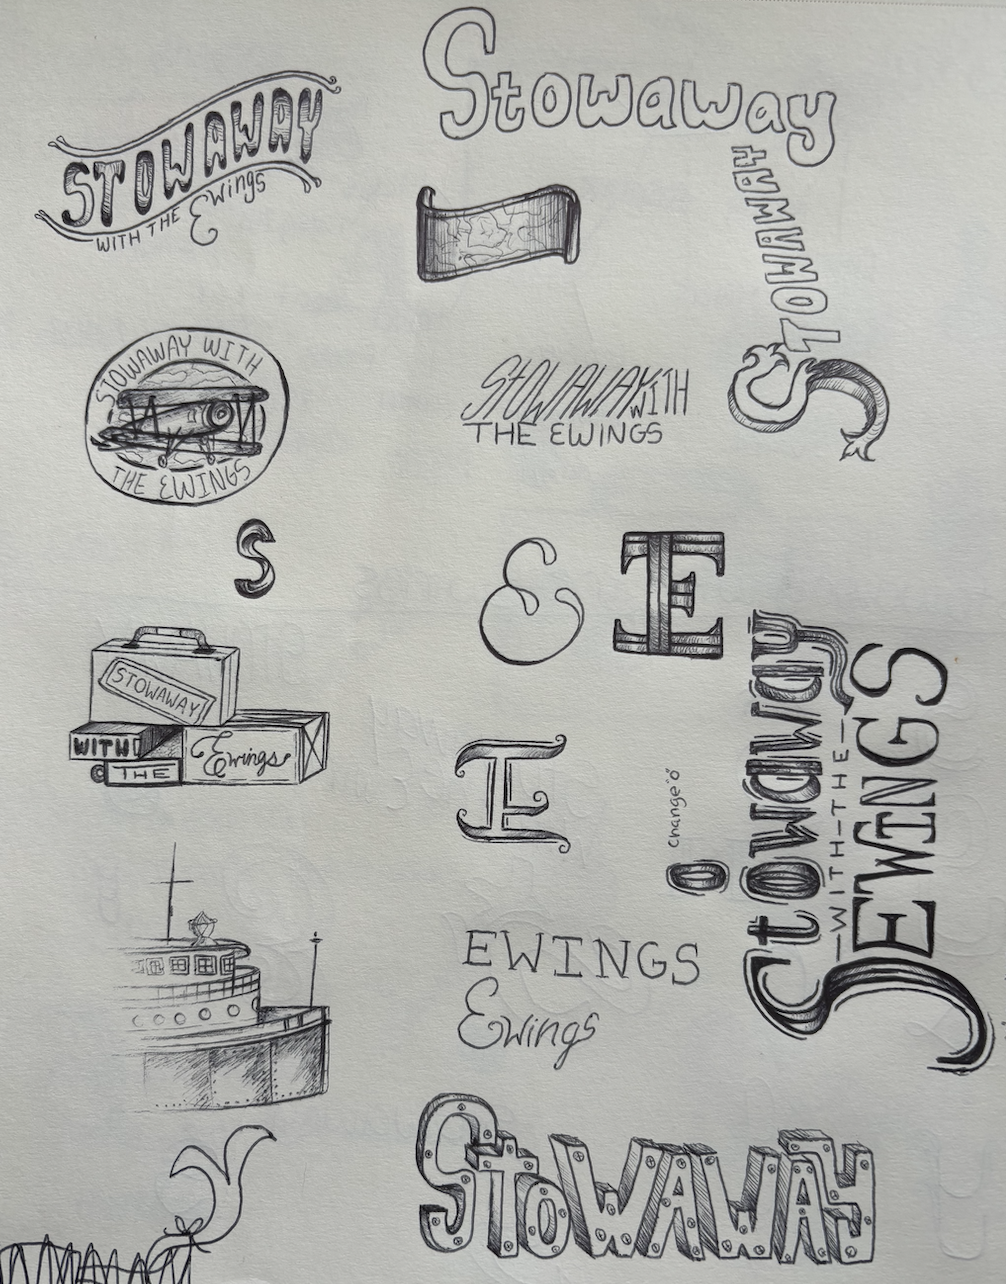 STOWAWAY
WITH THE Ewings
Stowaway
STOWAWAY
STOWAWAY WITH
THE EWINGS
STOWAWAY WITH
THE EWINGS
S
E
E
STOWAWAY
WITH
THE
Ewings
E
change
o
Stowaway
WITH-THE
EWINGS
EWINGS
Ewings
STOWAWAY
y